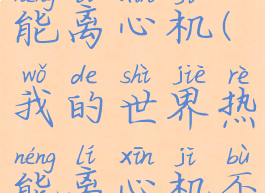 能离心机(
wǒ de shì jiè rè
我的世界热
néng lí xīn jī bù
能离心机不